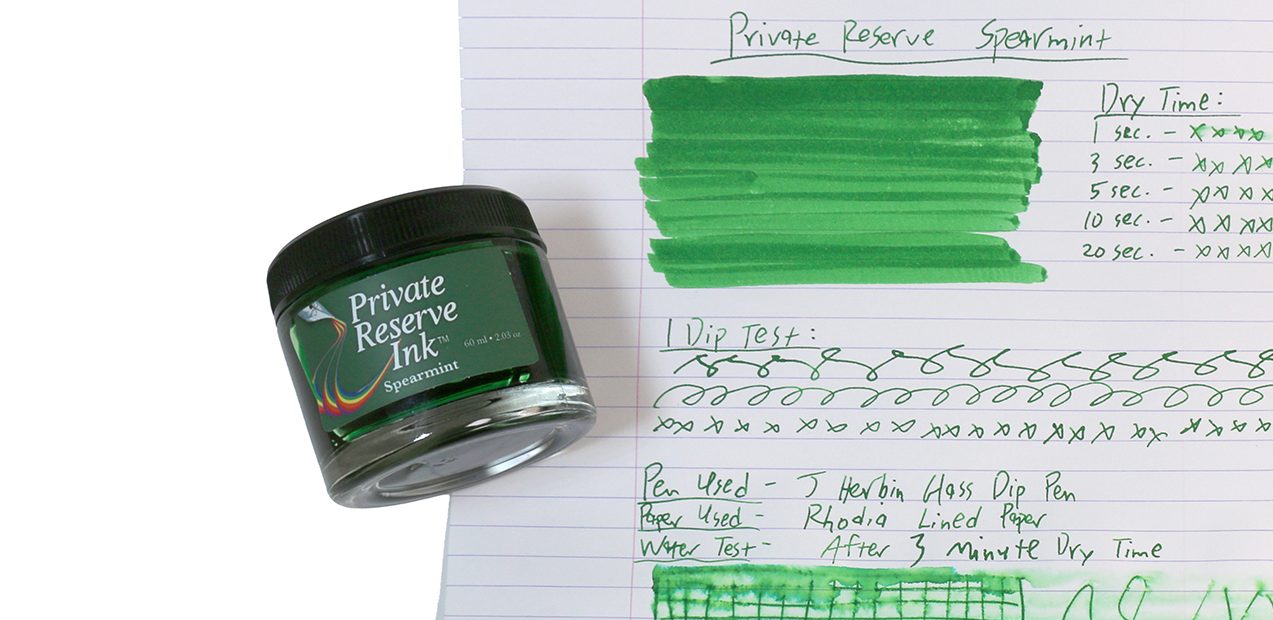 Private Reserve Spearmint
Dry Time:
1 sec. - x x x x
3 sec. - x x x x
5 sec. - x x x x
10 sec. - x x x x
20 sec. - x x x x
Private
Reserve
Ink™
60 ml • 2.03 oz
Spearmint
1 Dip Test:
x x x x x x x x x x x x x x x x x x x x x x x x x x
Pen Used - J Herbin Glass Dip Pen
Paper Used - Rhodia Lined Paper
Water Test - After 3 minute Dry Time